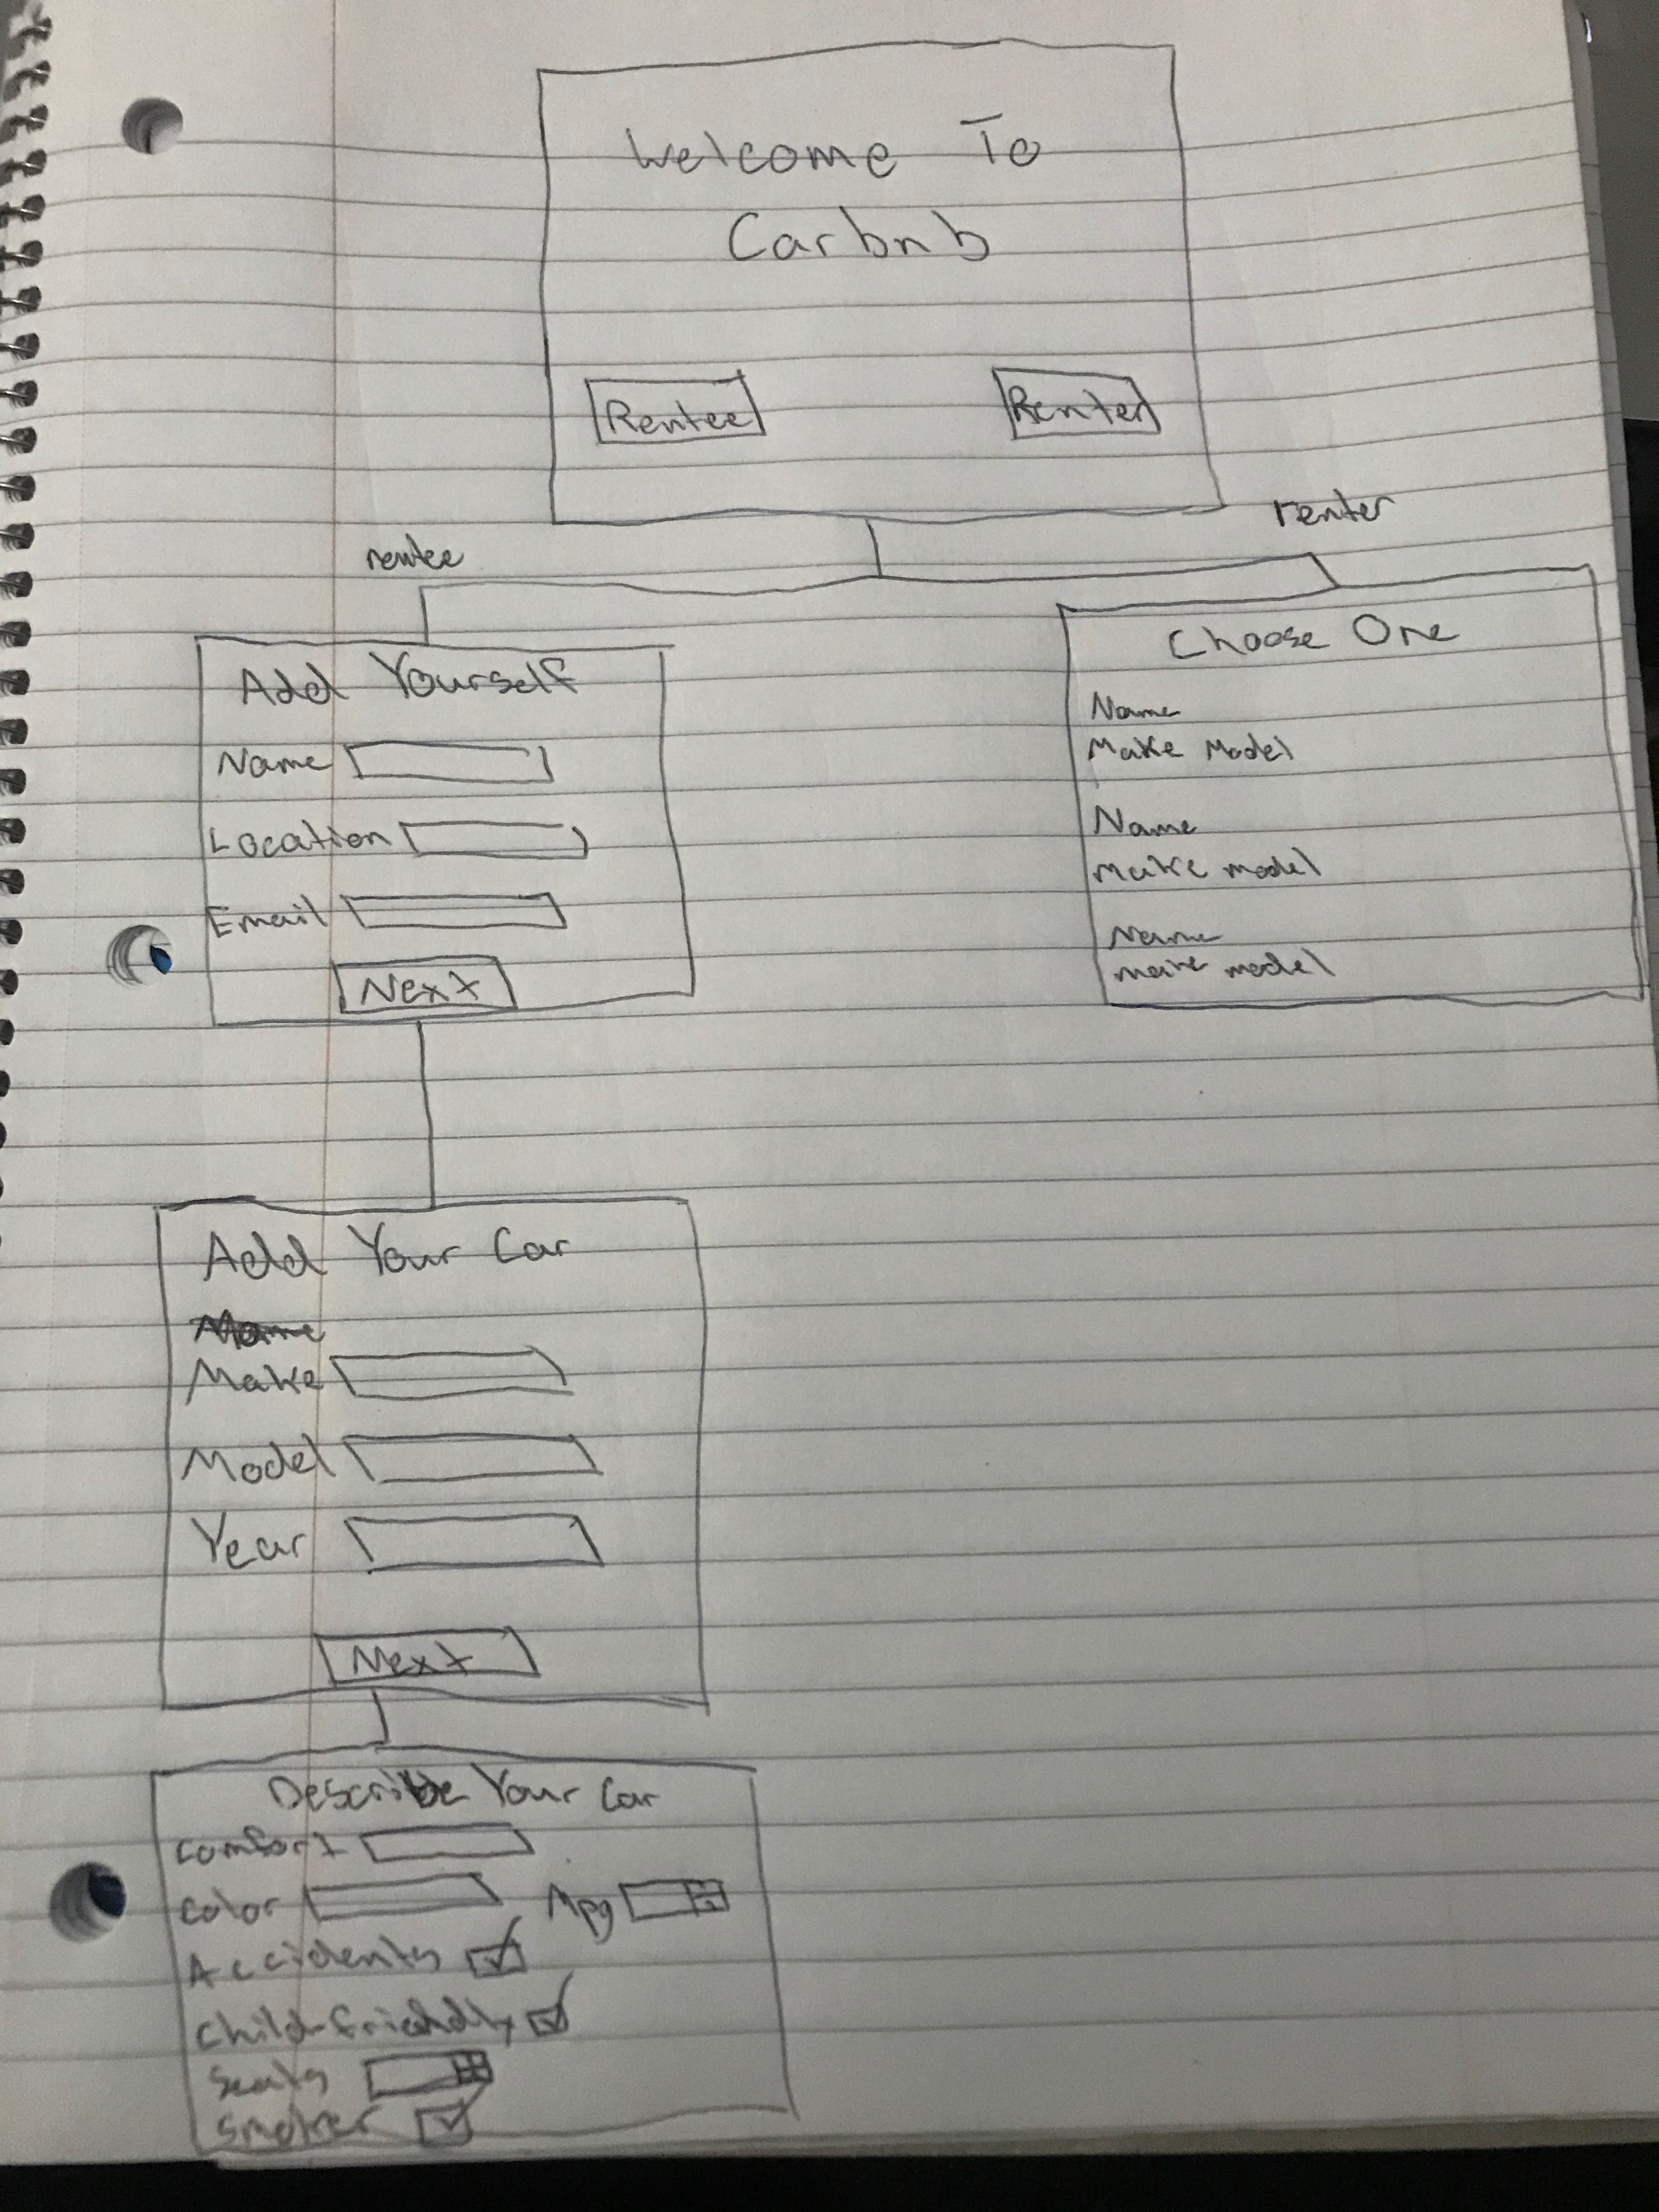 Welcome To
Carbnb
Rentee
Renter
rentee
renter
Add Yourself
Name
Location
Email
Next
Choose One
Name
Make Model
Name
Make model
Name
make model
Add Your Car
Make
Model
Year
Next
Describe Your Car
comfort
color Mpg
Accidents
child-friendly
Seats
Smoker